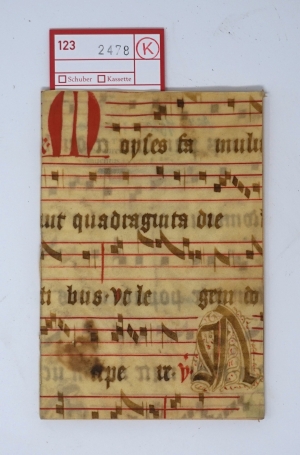 123
2478
K
Schuber Kassette
Moyses fa mulus
nit quadraginta die
bus vt le gem do
ape r